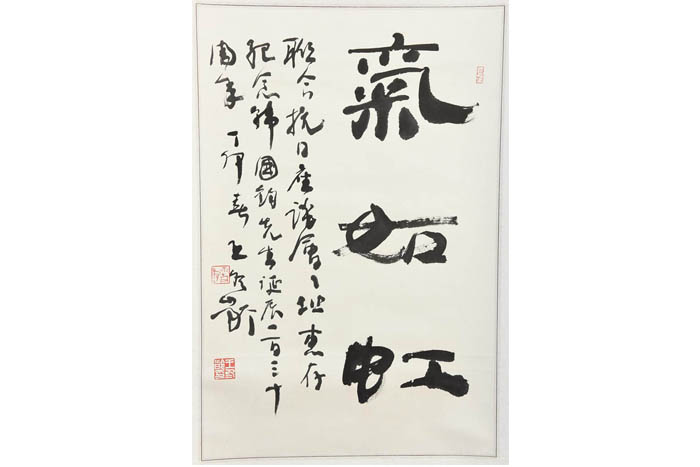 氣如虹
聯合抗日座談會々址惠存
紀念韓國鈞先生誕辰一百三十
周年 丁卯春 王冬齡